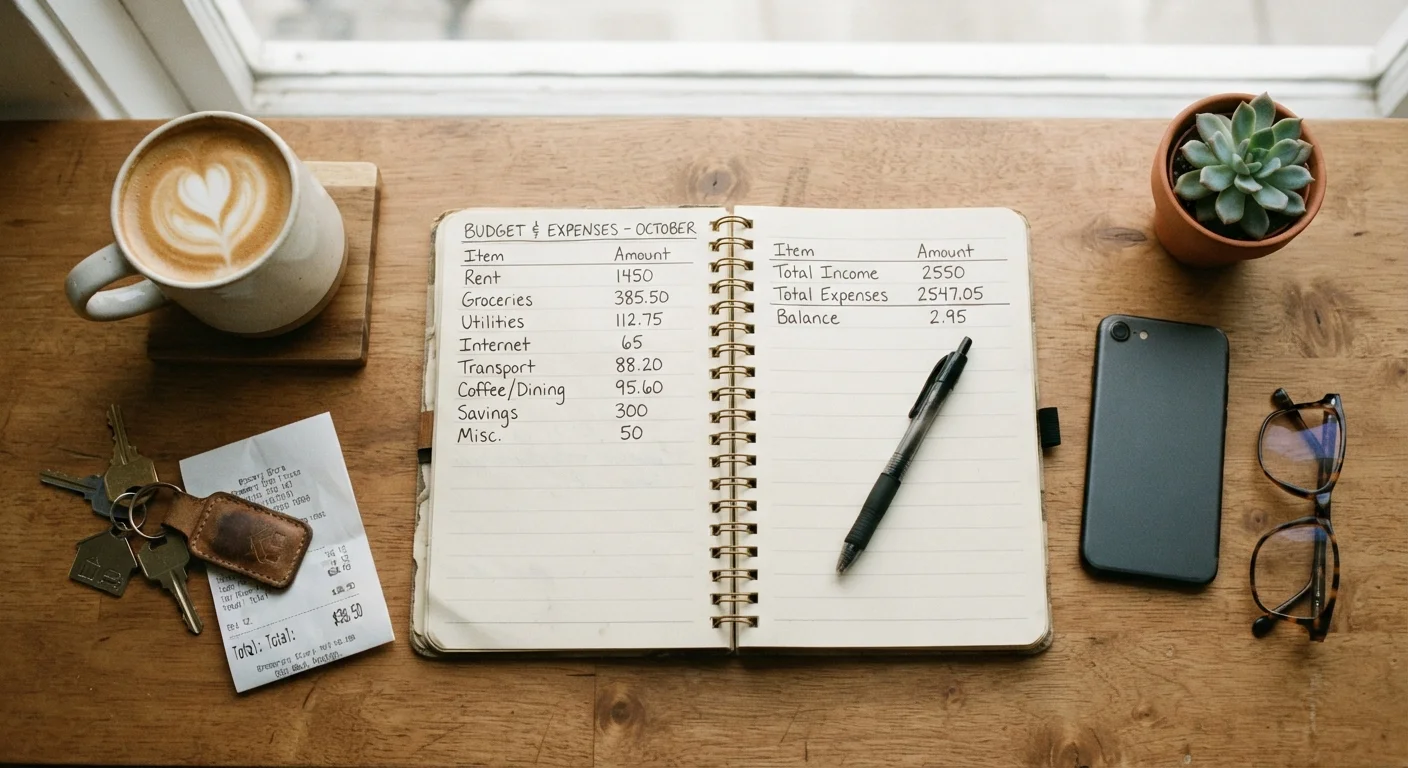 BUDGET & EXPENSES – OCTOBER
Item Amount
Rent 1450
Groceries 385.50
Utilities 112.75
Internet 65
Transport 88.20
Coffee/Dining 95.60
Savings 300
Misc. 50
Item Amount
Total Income 2550
Total Expenses 2547.05
Balance 2.95
Total: Total: